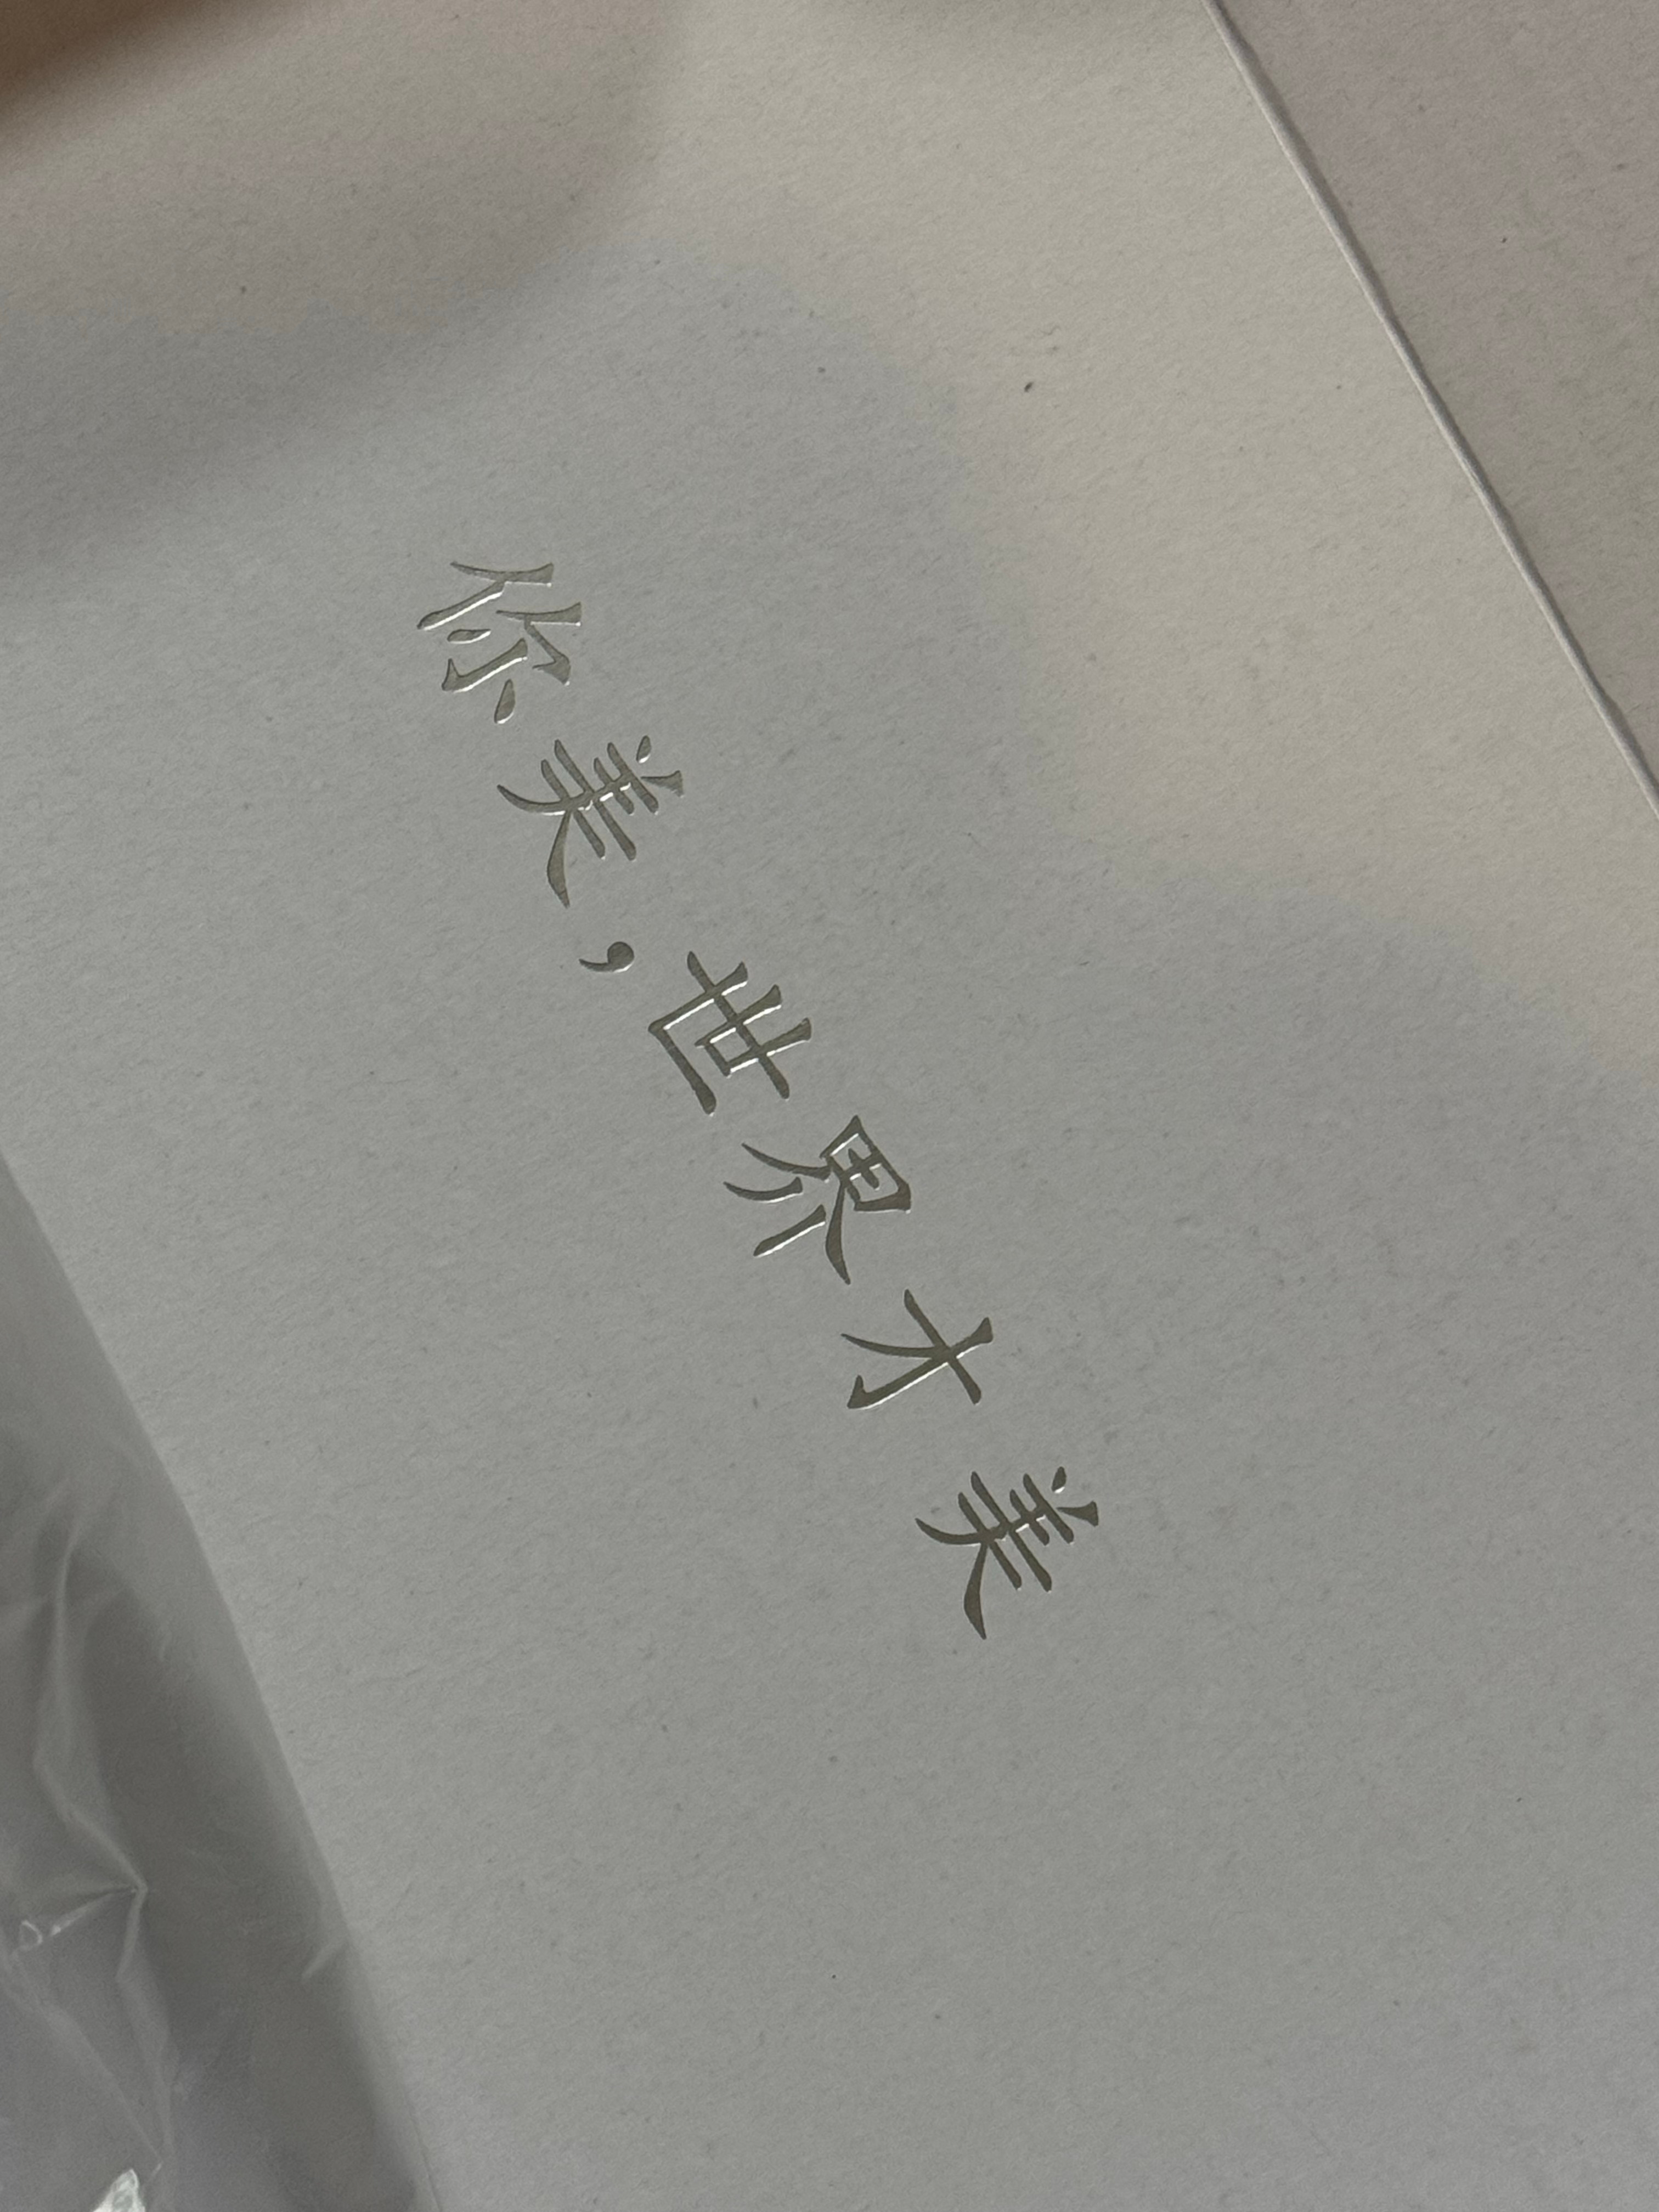 你美,世界才美